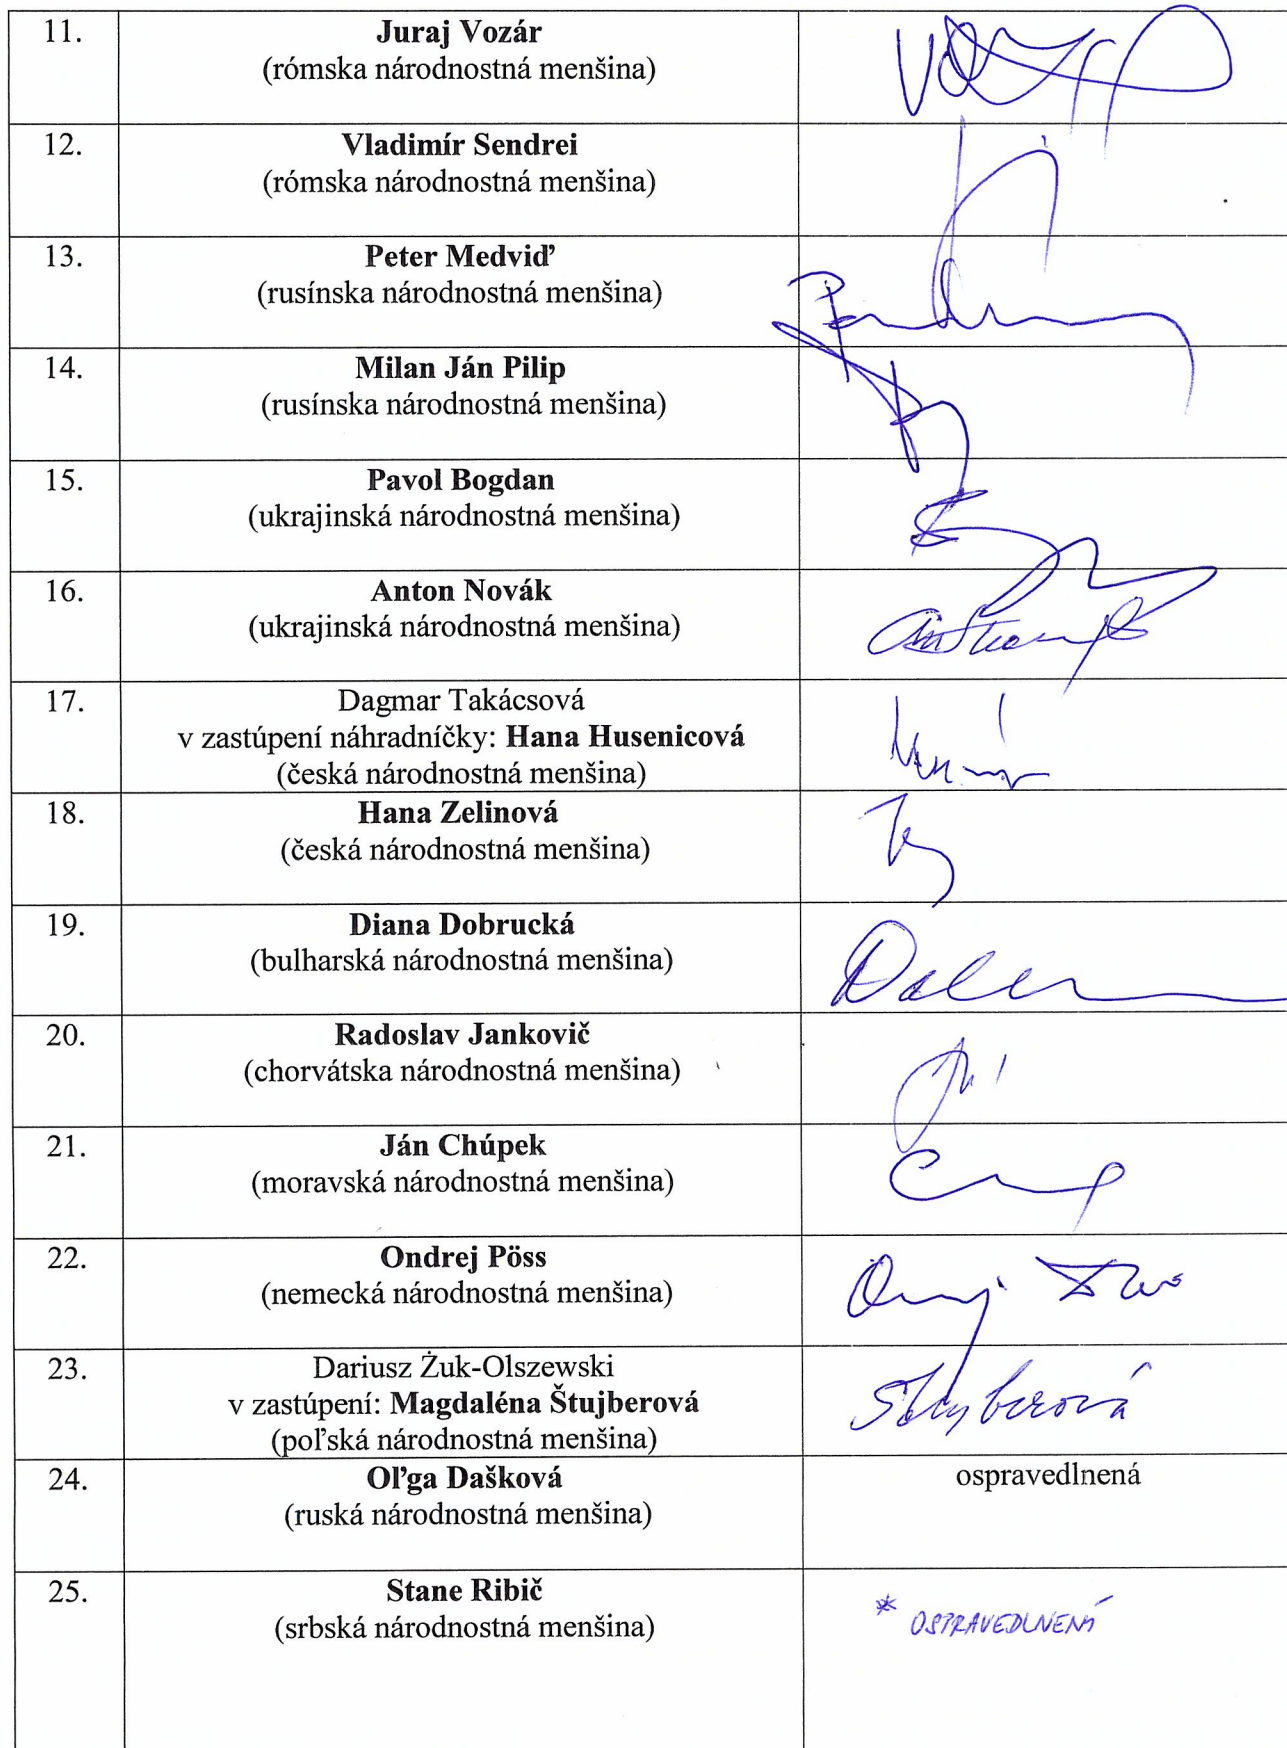 11.
Juraj Vozár
(rómska národnostná menšina)
12.
Vladimír Sendrei
(rómska národnostná menšina)
13.
Peter Medviď
(rusínska národnostná menšina)
14.
Milan Ján Pilip
(rusínska národnostná menšina)
15.
Pavol Bogdan
(ukrajinská národnostná menšina)
16.
Anton Novák
(ukrajinská národnostná menšina)
17.
Dagmar Takácsová
v zastúpení náhradníčky: Hana Husenicová
(česká národnostná menšina)
18.
Hana Zelinová
(česká národnostná menšina)
19.
Diana Dobrucká
(bulharská národnostná menšina)
20.
Radoslav Jankovič
(chorvátska národnostná menšina)
21.
Ján Chúpek
(moravská národnostná menšina)
22.
Ondrej Pöss
(nemecká národnostná menšina)
23.
Dariusz Żuk-Olszewski
v zastúpení: Magdaléna Štujberová
(poľská národnostná menšina)
24.
Oľga Dašková
ospravedlnená
(ruská národnostná menšina)
25.
Stane Ribič
(srbská národnostná menšina)
* OSPRAVEDLNENÝ